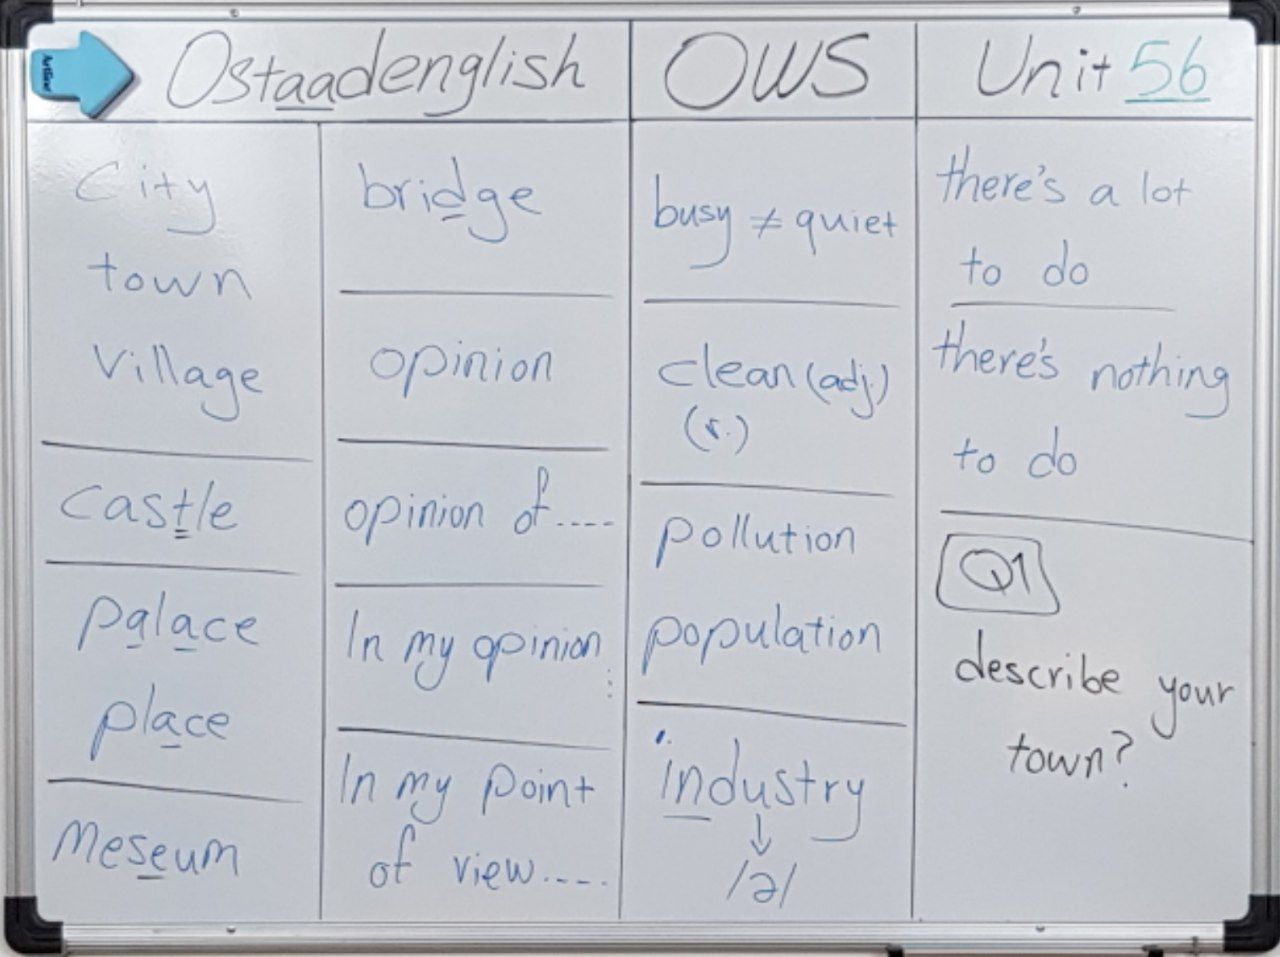 Artline
Ostaadenglish
OWS
Unit 56
City
town
Village
castle
palace
place
Meseum
bridge
opinion
opinion of....
In my opinion
...
In my point
of view....
busy ≠ quiet
clean (adj.)
(v.)
pollution
population
industry
↓
/ə/
there's a lot
to do
there's nothing
to do
Q1
describe your
town?